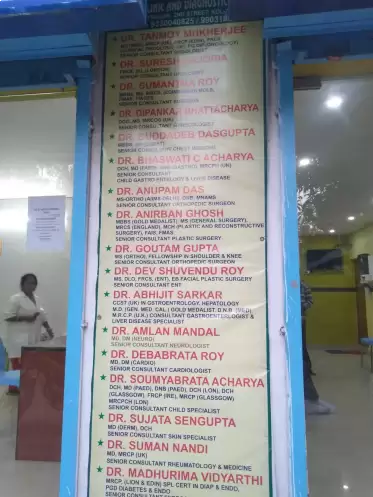 NIK AND DIAGNOSTIC
2ND STREET
9230040825
DR. TANMOY MUKHERJEE
DR. SURESH
DR. SUMANTRA ROY
DR. DIPANKAR BHATTACHARYA
SENIOR CONSULTANT
DR. BUDDADEB DASGUPTA
SENIOR CONSULTANT CHEST
DR. BHASWATI C ACHARYA
SENIOR CONSULTANT
CHILD GASTRO-ENOLOGY & LIVER DISEASE
DR. ANUPAM DAS
SENIOR CONSULTANT ORTHOPEDIC SURGEON
DR. ANIRBAN GHOSH
MBBS (GOLD MEDALIST), MS (GENERAL SURGERY),
MRCS (ENGLAND), MCH (PLASTIC AND RECONSTRUCTIVE
SURGERY), FAIS, FMAS
SENIOR CONSULTANT PLASTIC SURGERY
DR. GOUTAM GUPTA
MS (ORTHO), FELLOWSHIP IN SHOULDER & KNEE
SENIOR CONSULTANT ORTHOPEDIC SURGEON
DR. DEV SHUVENDU ROY
MS, DLO, FRCS, (ENT), EB FACIAL PLASTIC SURGERY
SENIOR CONSULTANT ENT
DR. ABHIJIT SARKAR
CCST (UK) IN GSTROENTROLOGY, HEPATOLOGY
M.D. (GEN. MED. CAL.) GOLD MEDALIST, D.N.B. (MED)
M.R.C.P. (U.K.) CONSULTANT GASTROENTEROLOGIST &
LIVER DISEASE SPECIALIST
DR. AMLAN MANDAL
MD, DM (NEURO)
SENIOR CONSULTANT NEUROLOGIST
DR. DEBABRATA ROY
MD, DM (CARDIO)
SENIOR CONSULTANT CARDIOLOGIST
DR. SOUMYABRATA ACHARYA
DCH, MD (PAED), DNB (PAED), DCH (LON), DCH
(GLASSGOW), FRCP (IRE), MRCP (GLASSGOW)
MRCPCH (LON)
SENIOR CONSULTANT CHILD SPECIALIST
DR. SUJATA SENGUPTA
MD (DERM), DCH
SENIOR CONSULTANT SKIN SPECIALIST
DR. SUMAN NANDI
MD, MRCP (UK)
SENIOR CONSULTANT RHEUMATOLOGY & MEDICINE
DR. MADHURIMA VIDYARTHI
MRCP, (LON & EDIN) SPL CERT IN DIAP & ENDO,
PGD DIABETES & ENDO
SENIOR CONSULTANT